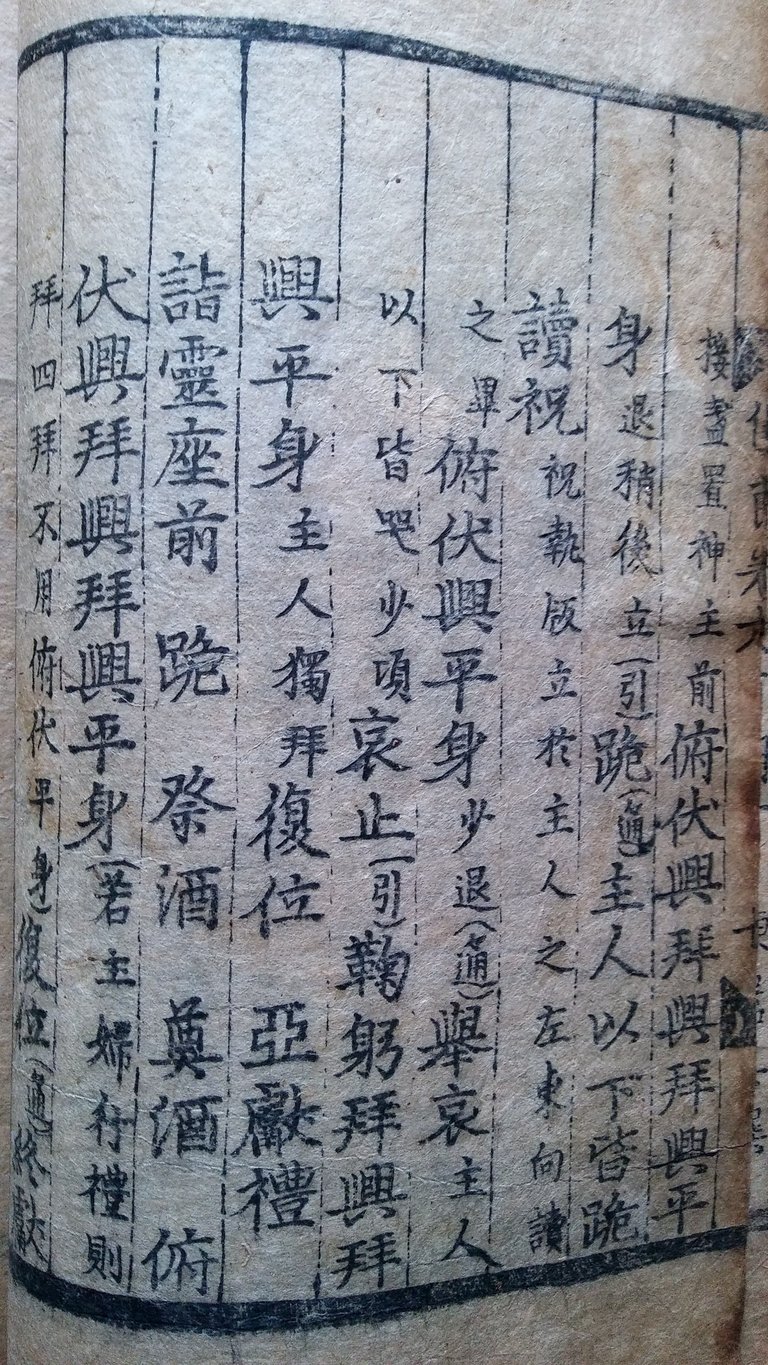 接盞置神主前俯伏興拜興拜興平
身退稍後立(引)跪(通)主人以下皆跪
讀祝祝執版立於主人之左東向讀
之畢俯伏興平身少退(通)舉哀主人
以下皆哭少頃哀止(引)鞠躬拜興拜
興平身主人獨拜復位 亞獻禮
詣靈座前 跪 祭酒 奠酒 俯
伏興拜興拜興平身(若主婦行禮則
拜四拜不用俯伏平身)復位(通)終獻